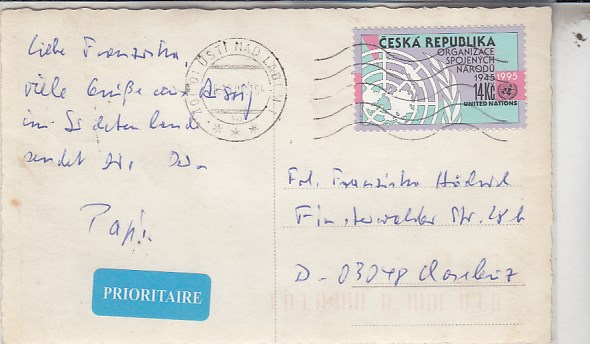 Liebe Franziska,
viele Grüße aus Aussig
im Sudetenland
sendet Dir Dein
Papi.
PRIORITAIRE
ÚSTÍ NAD LABEM 1
ČESKÁ REPUBLIKA
ORGANIZACE
SPOJENÝCH
NÁRODŮ
1945 1995
14Kč
UNITED NATIONS
Frl. Franziska
Finsterwalder Str.
D-03048 Cottbus